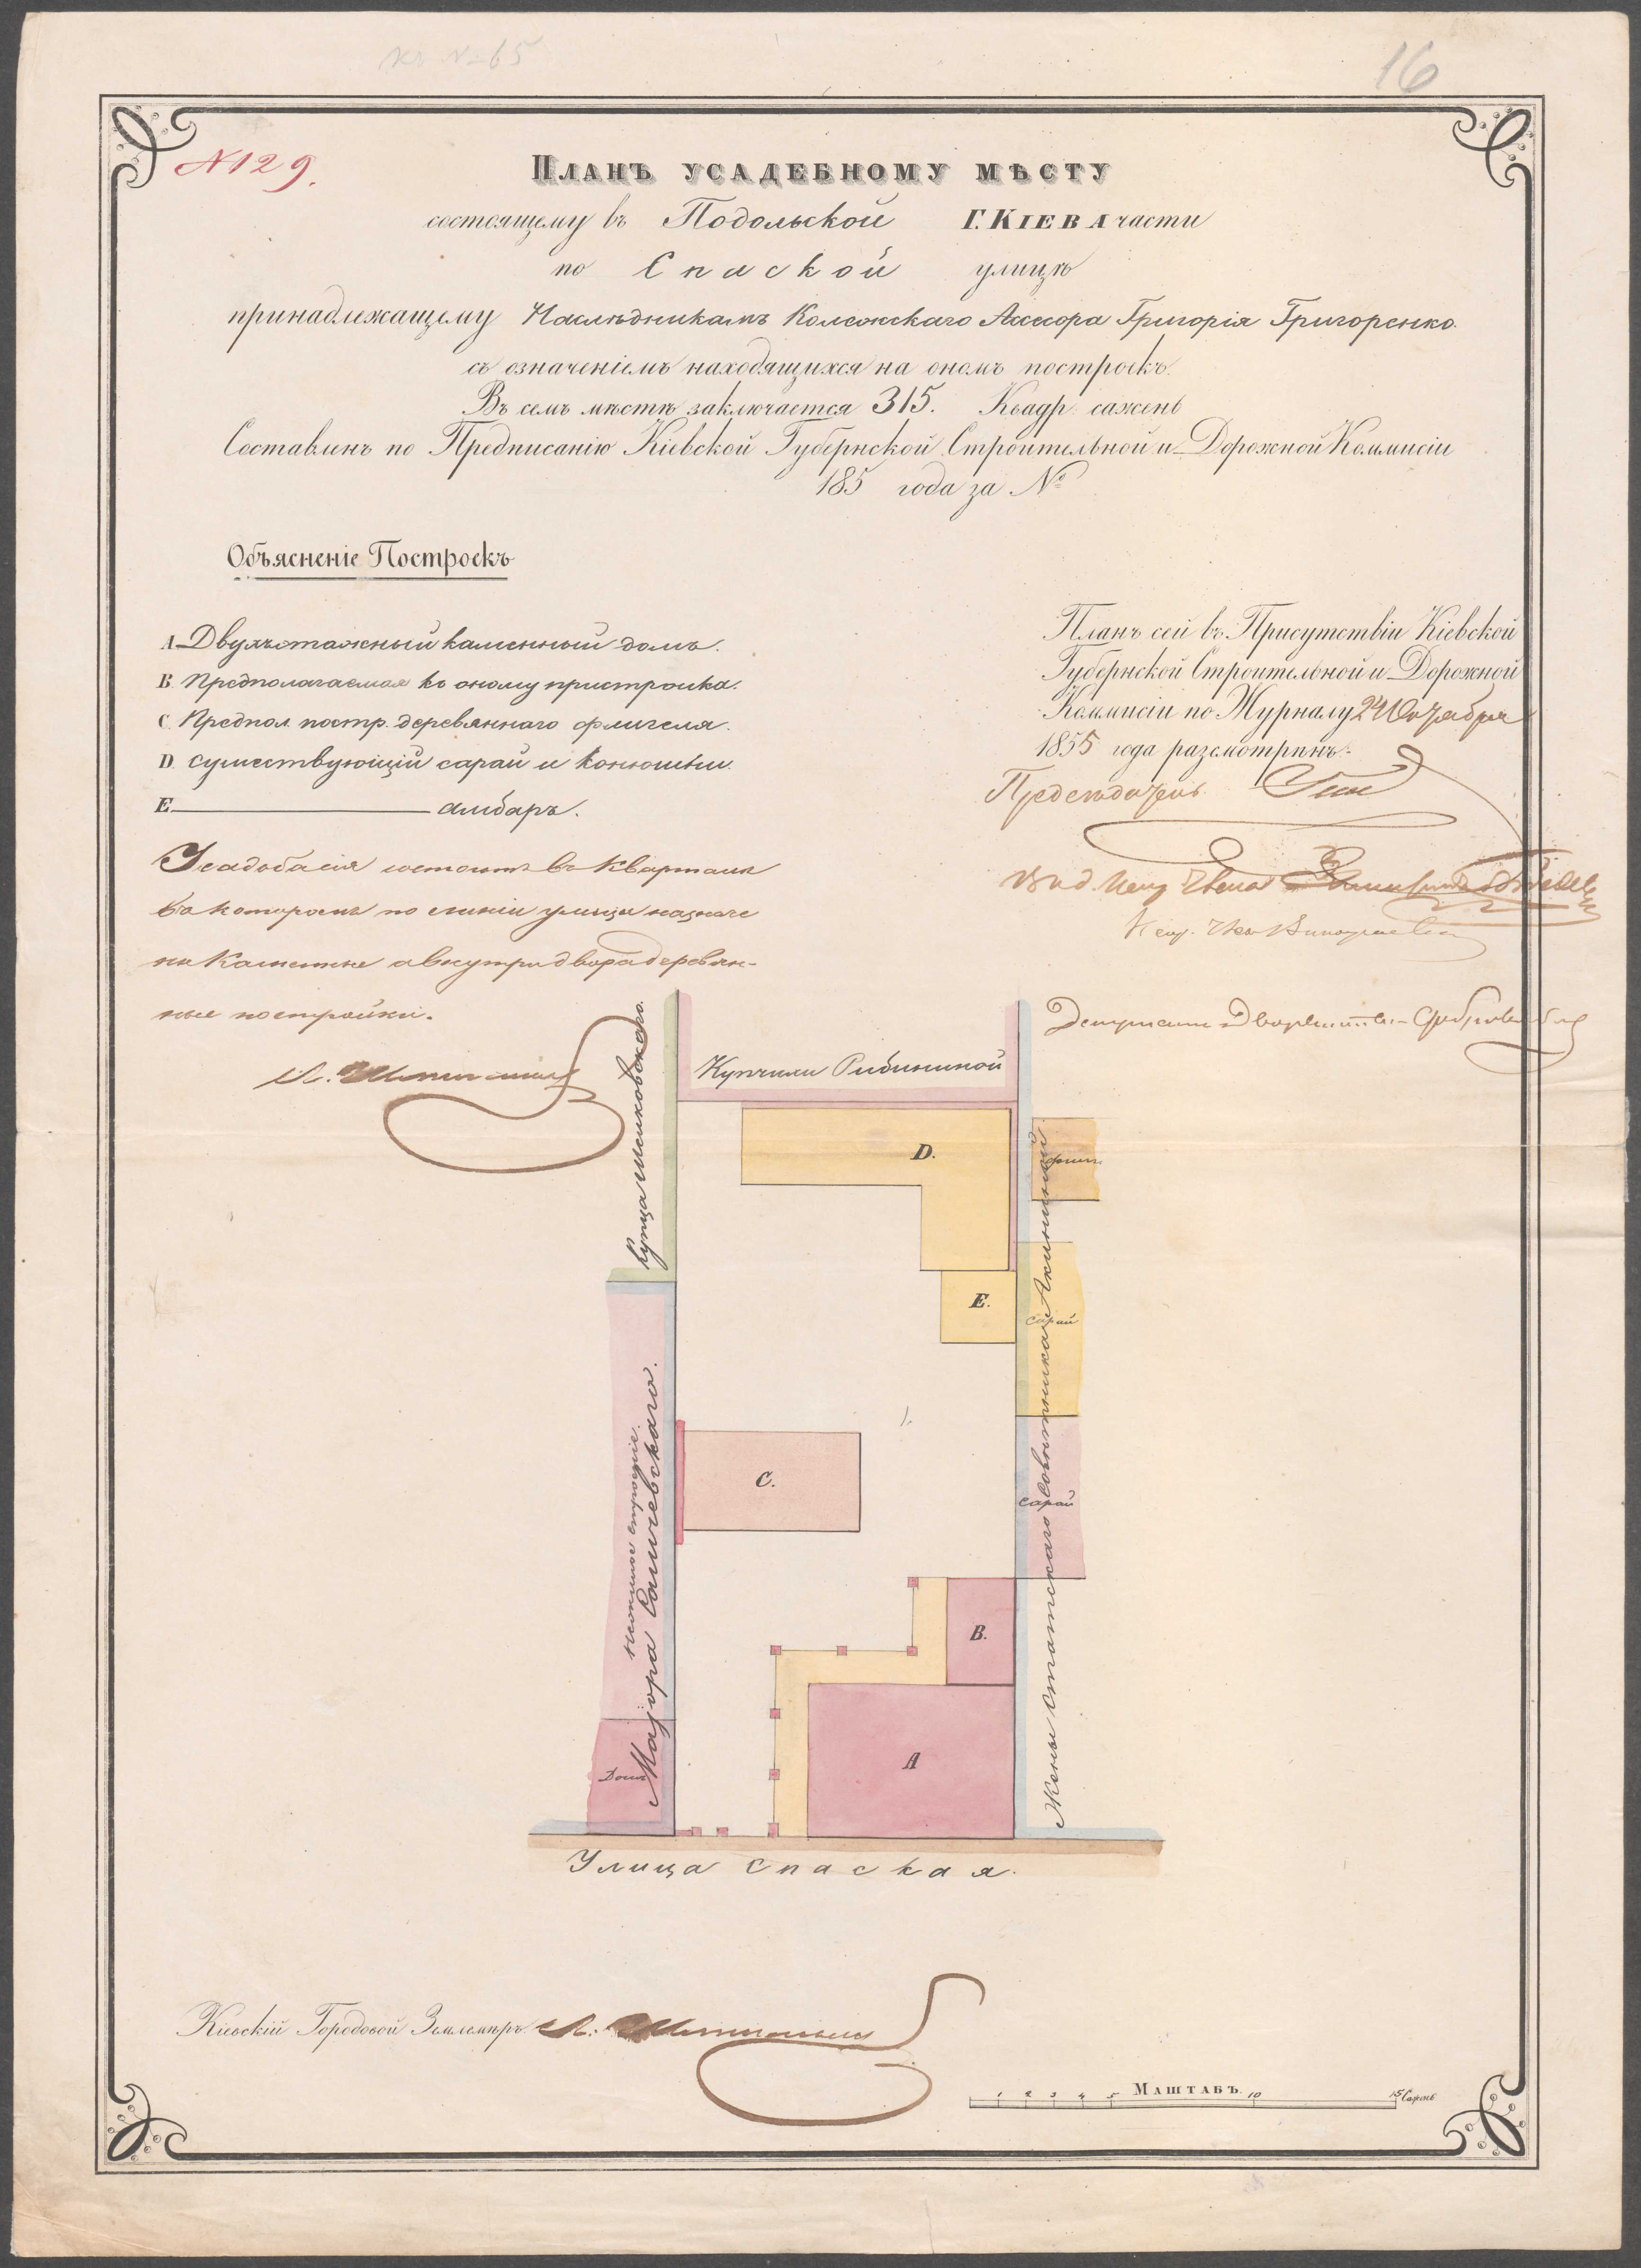 16
N 129.
Планъ усадебному мѣсту
состоящему въ Подольской Г. Кіева части
по Спаской улицѣ
принадлежащему Наслѣдникамъ Колежскаго Ассесора Григорія Григоренко.
съ означеніемъ находящихся на ономъ построекъ.
Въ семъ мѣстѣ заключается 315. Квадр: сажень
Составленъ по Предписанію Кіевской Губернской Строительной и Дорожной Коммисіи
185 года за №
Объясненіе Построекъ
A Двухъэтажный каменный домъ.
B. Предполагаемая къ оному пристройка.
C. Предпол. постр. деревяннаго флигеля.
D. существующій сарай и конюшни.
E. амбаръ.
Усадьба сія состоитъ въ Кварталѣ
въ которомъ по линіи улицы назначе
ны Каменные а внутри двора деревян-
ные постройки.
Планъ сей въ Присутствіи Кіевской
Губернской Строительной и Дорожной
Коммисіи по Журналу 24 Октября
1855 года разсмотрѣнъ.
Предсѣдатель
Депутатъ Дворянства
Купчихи Рибининой
Купца
D.
флиг.
E.
сарай
C.
сарай
нежилое строеніе.
Маіора
Жены Статскаго Совѣтника
B.
A
Домъ
Улица Спаская.
Кіевскій Городовой Землемѣръ
Маштабъ.
1 2 3 4 5 10 15 Сажень